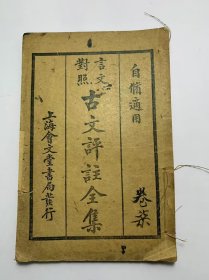 自修適用
卷柒
言文
對照
古文評註全集
上海會文堂書局發行